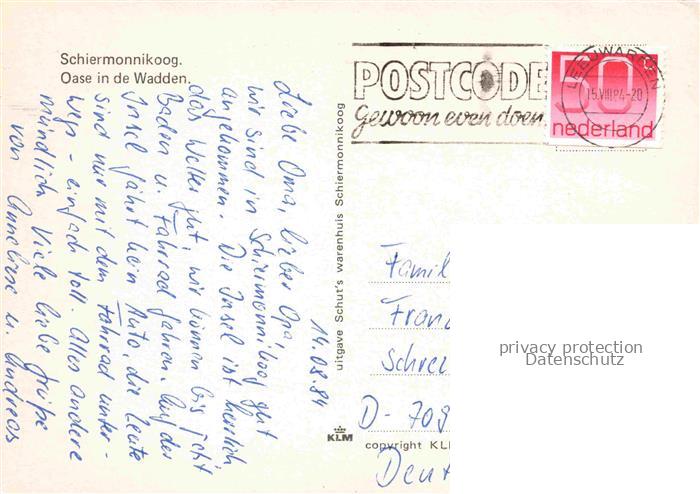 Schiermonnikoog.
Oase in de Wadden.
POSTCODE
gewoon even doen
LEEUWARDEN
15.VIII.84-20
50
nederland
14.08.84
Liebe Oma, lieber Opa,
wir sind in Schiermonnikoog gut
angekommen. Die Insel ist herrlich
das Wetter gut, wir können bis jetzt
Baden u. Fahrrad fahren. Auf der
Insel fährt kein Auto, die Leute
sind nur mit dem Fahrrad unter-
wegs - einfach toll. Alles andere
mündlich Viele liebe Grüße
von Anneliese u. Andreas
uitgave Schut's warenhuis Schiermonnikoog
KLM
copyright KL
Famil
Fran
Schrei
D-709
Deut
privacy protection
Datenschutz